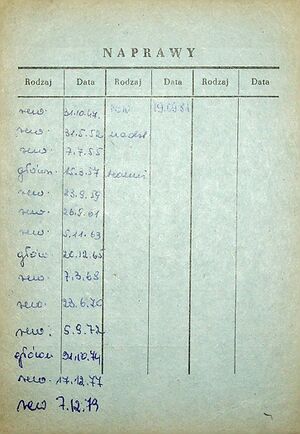 NAPRAWY
Rodzaj Data Rodzaj Data Rodzaj Data
rew. 31.10.47. rew 19.09.81
rew. 31.5.52
rew. 7.7.55
główn. 15.9.57
rew. 23.9.59
rew. 26.9.61
rew. 5.11.63
główn. 20.12.65
rew. 7.3.68
rew. 23.6.70
rew. 5.9.72
główn 31.10.74
rew. 17.12.77
rew 7.12.79